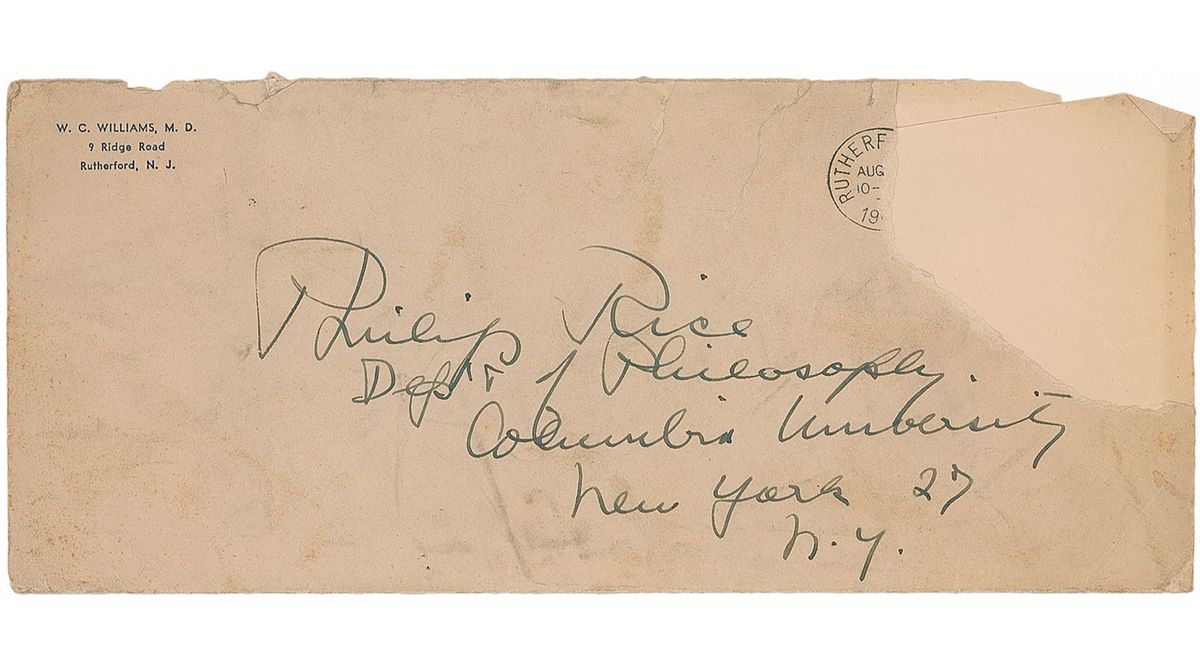 W. C. WILLIAMS, M. D.
9 Ridge Road
Rutherford, N. J.
RUTHERF
AUG
10-
19
Philip Rice
Dep't of Philosophy.
Columbia University
New York 27
N.Y.